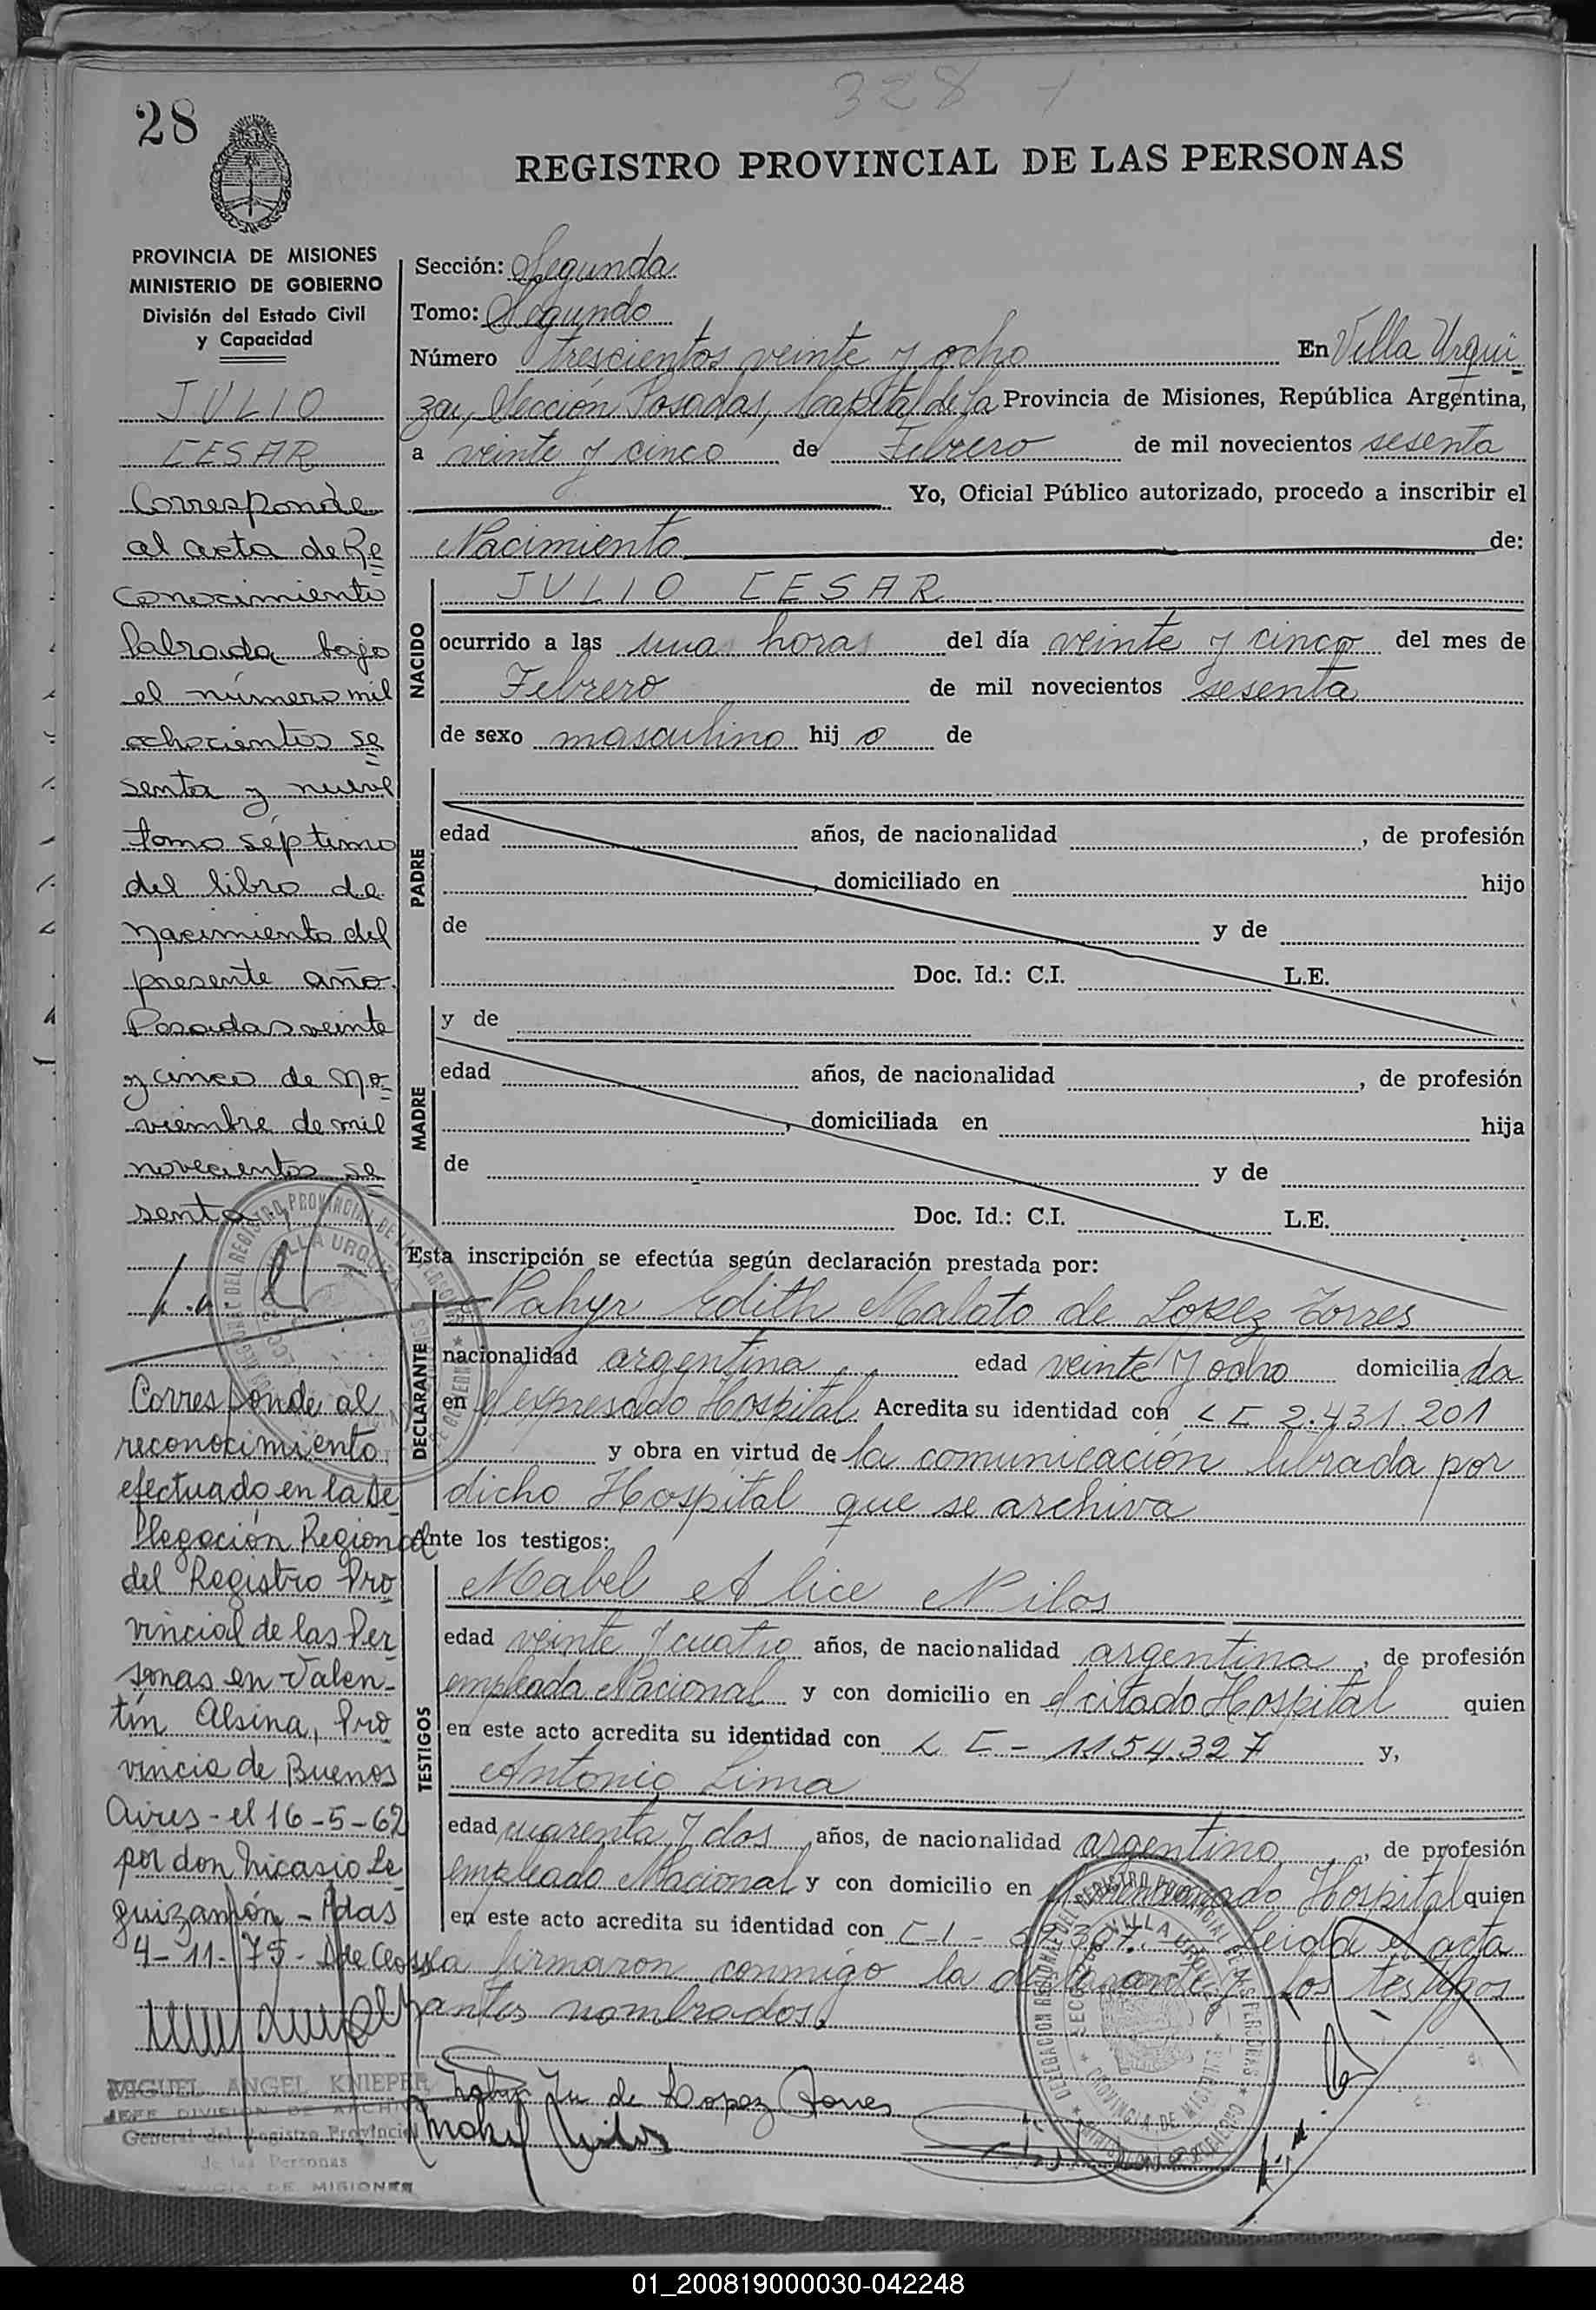 328
28
REGISTRO PROVINCIAL DE LAS PERSONAS
PROVINCIA DE MISIONES
MINISTERIO DE GOBIERNO
División del Estado Civil
y Capacidad
JULIO
CESAR
Corresponde
al acta de Re
conocimiento
labrada bajo
el número mil
ochocientos se
senta y nueve
tomo séptimo
del libro de
Nacimiento del
presente año.
Posadas veinte
y cinco de No-
viembre de mil
novecientos se
senta
Corresponde al
reconocimiento
efectuado en la De
legación Regional
del Registro Pro
vincial de las Per
sonas en Valen-
tín Alsina, Pro
vincia de Buenos
Aires - el 16-5-62
por don Nicasio Le
guizamón - Pdas
4-11-75-
MIGUEL ANGEL KNIEPER
JEFE DIVISION DE ARCHIVO
General del Registro Provincial
de las Personas
DE MISIONES
Sección: Segunda
Tomo: Segundo
Número trescientos veinte y ocho En Villa Urqui
za, Sección Posadas, Capital de la Provincia de Misiones, República Argentina,
a veinte y cinco de Febrero de mil novecientos sesenta
Yo, Oficial Público autorizado, procedo a inscribir el
Nacimiento de:
NACIDO
JULIO CESAR
ocurrido a las unas horas del día veinte y cinco del mes de
Febrero de mil novecientos sesenta
de sexo masculino hijo de
PADRE
edad años, de nacionalidad , de profesión
, domiciliado en hijo
de y de
Doc. Id.: C.I. L.E.
MADRE
y de
edad años, de nacionalidad , de profesión
, domiciliada en hija
de y de
Doc. Id.: C.I. L.E.
Esta inscripción se efectúa según declaración prestada por:
DECLARANTE
Nahyr Edith Malato de Lopez Torres
nacionalidad argentina, edad veinte y ocho domiciliada
en el expresado Hospital Acredita su identidad con LC 2.431.201
y obra en virtud de la comunicación librada por
dicho Hospital que se archiva
Ante los testigos:
TESTIGOS
Mabel Alice Nilos
edad veinte y cuatro años, de nacionalidad argentina, de profesión
empleada Nacional y con domicilio en el citado Hospital quien
en este acto acredita su identidad con LC - 1154.327 y,
Antonio Lima
edad cuarenta y dos años, de nacionalidad argentino, de profesión
empleado Nacional y con domicilio en el mencionado Hospital quien
en este acto acredita su identidad con C-I - Leida el acta
firmaron conmigo la declarante y los testigos
antes nombrados.
de Lopez Torres
01_200819000030-042248